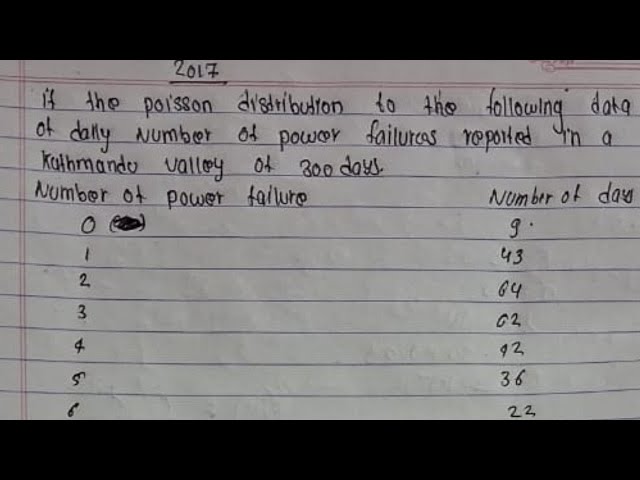 2017
if the poisson distribution to the following data
of daily number of power failures reported in a
Kathmandu valley of 300 days.
Number of power failure Number of days
0 9
1 43
2 64
3 62
4 42
5 36
6 22